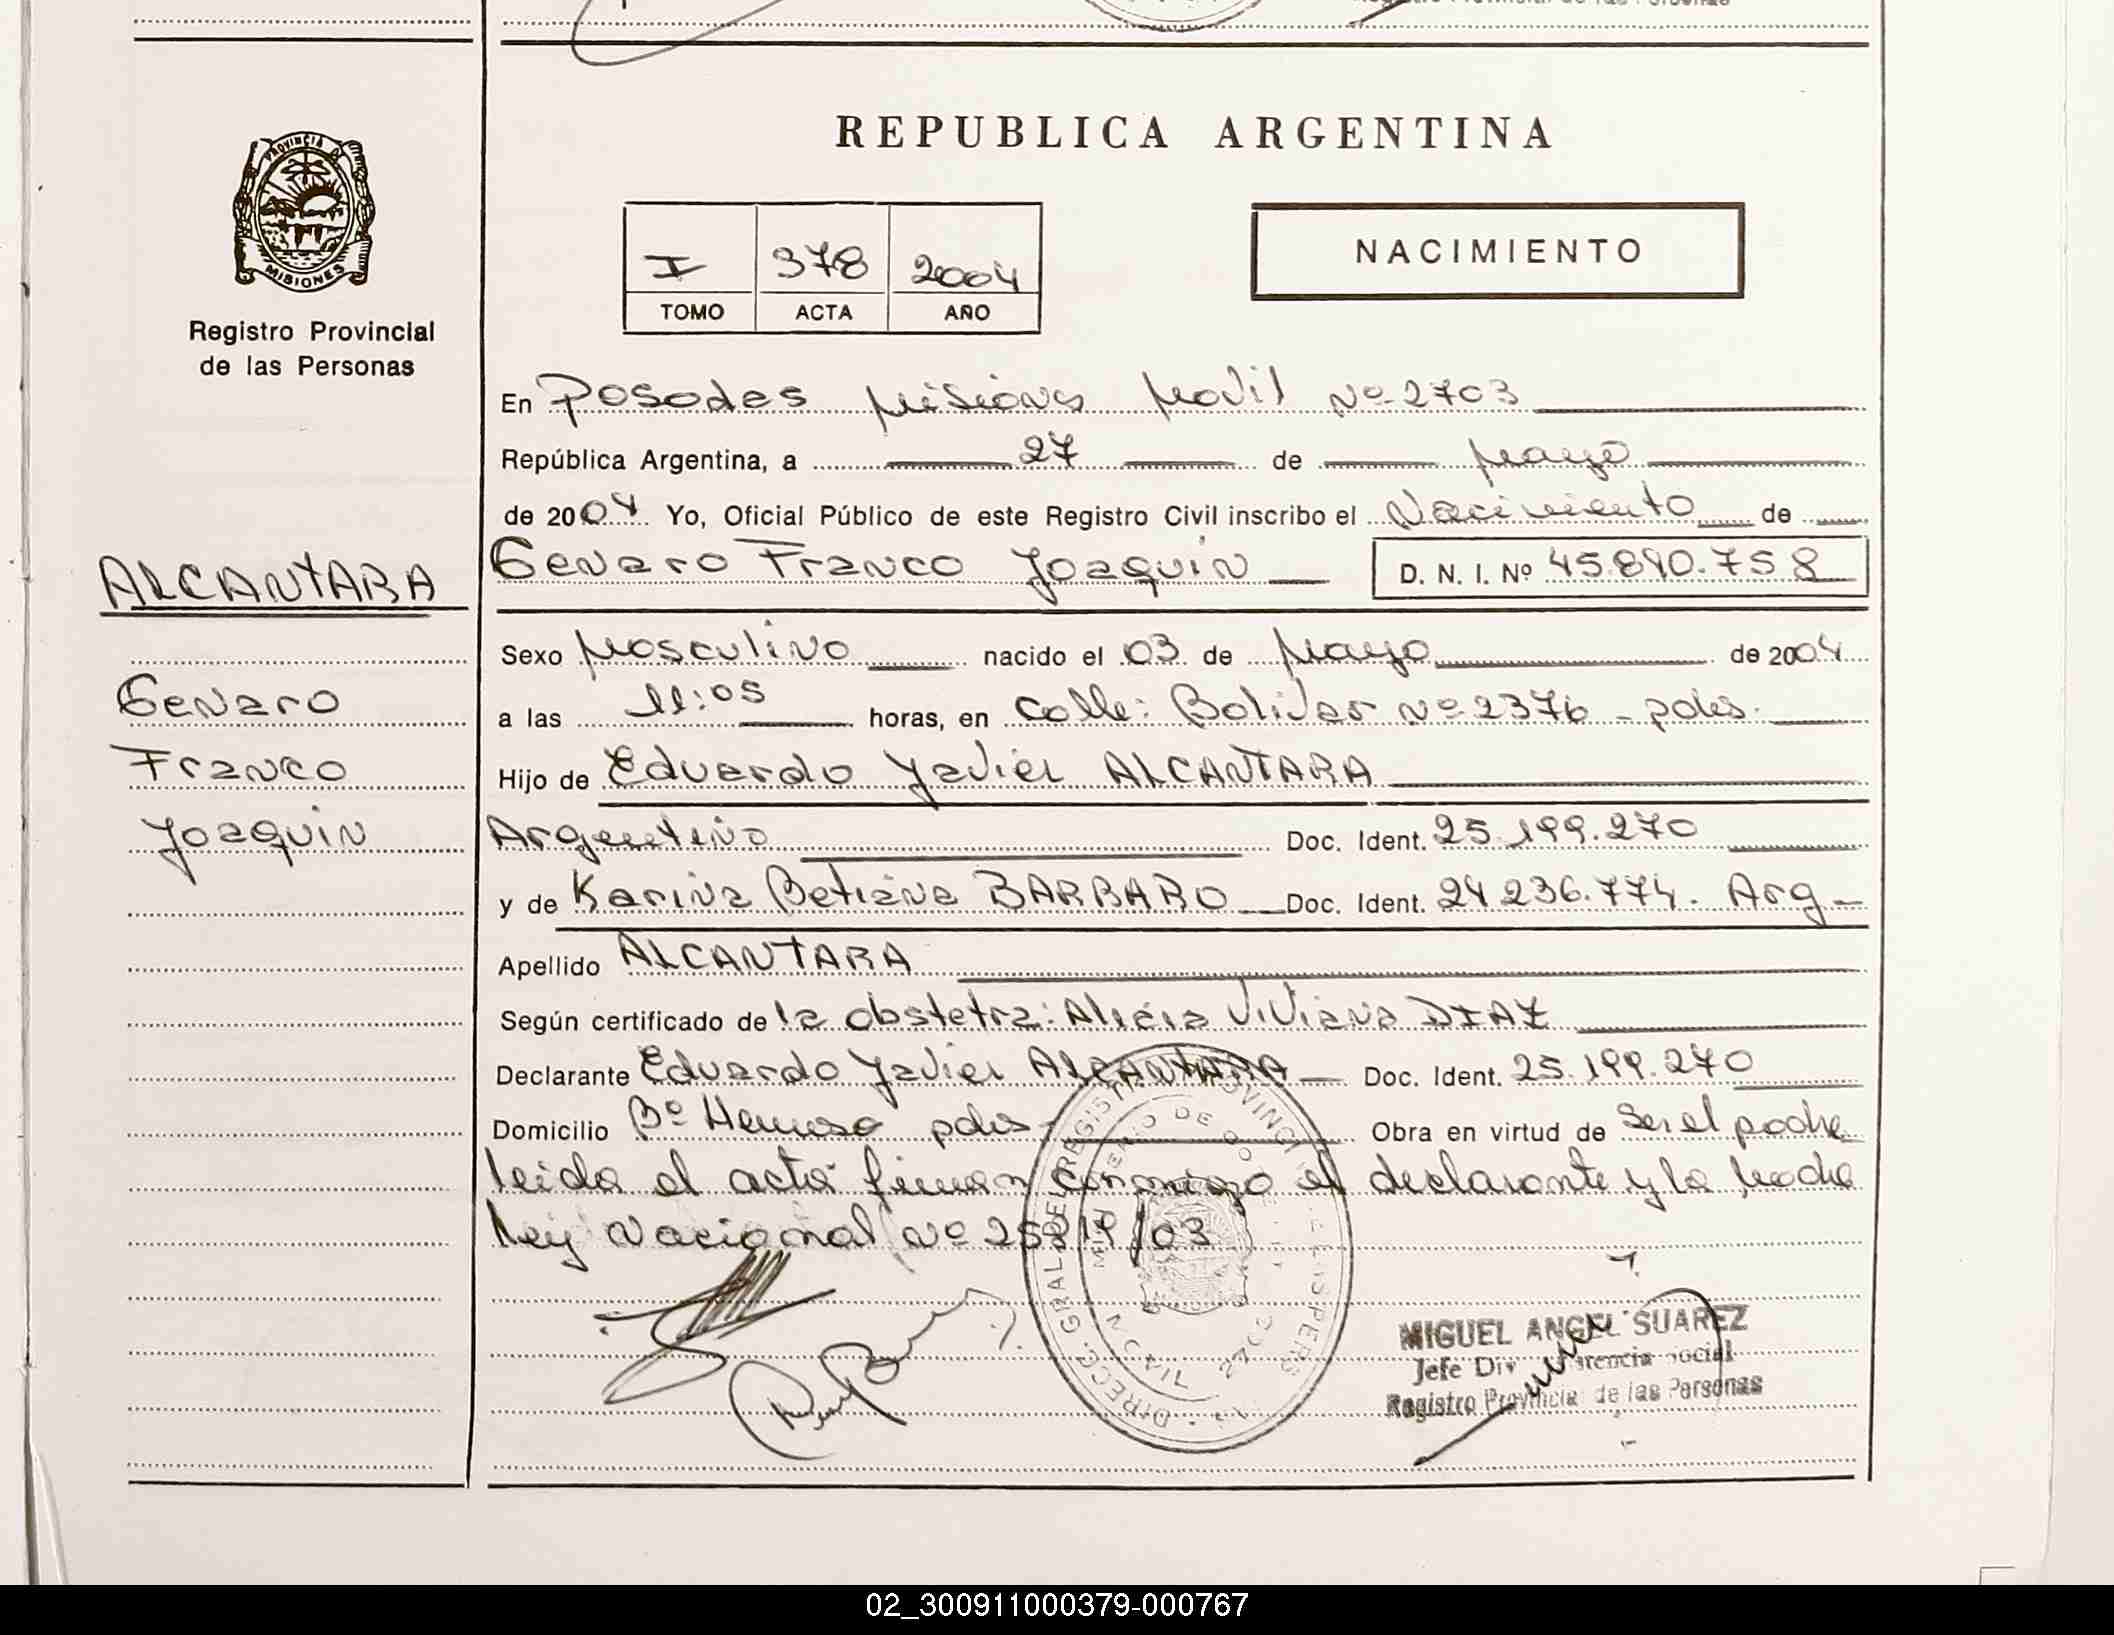 REPUBLICA ARGENTINA
PROVINCIA DE
MISIONES
Registro Provincial
de las Personas
I 378 2004
TOMO ACTA AÑO
NACIMIENTO
En Posadas Misiones Movil Nº 2703
República Argentina, a 27 de Mayo
de 2004 Yo, Oficial Público de este Registro Civil inscribo el Nacimiento de
Genaro Franco Joaquin D. N. I. Nº 45.890.758
ALCANTARA
Genaro
Franco
Joaquin
Sexo Masculino nacido el 03 de Mayo de 2004
a las 11:05 horas, en Calle: Bolivar Nº 2376 - pdas.
Hijo de Eduardo Javier ALCANTARA
Argentino Doc. Ident. 25.199.270
y de Karina Betiana BARBARO Doc. Ident. 24.236.774. Arg
Apellido ALCANTARA
Según certificado de la obstetra: Alicia Viviana DIAZ
Declarante Eduardo Javier ALCANTARA Doc. Ident. 25.199.270
Domicilio Bº Hermoso pdas Obra en virtud de Ser el padre
leida el acta firman conmigo el declarante y la madre
Ley Nacional Nº /03
MIGUEL ANGEL SUAREZ
Jefe Div Social
Registro Provincial de las Personas
02_300911000379-000767